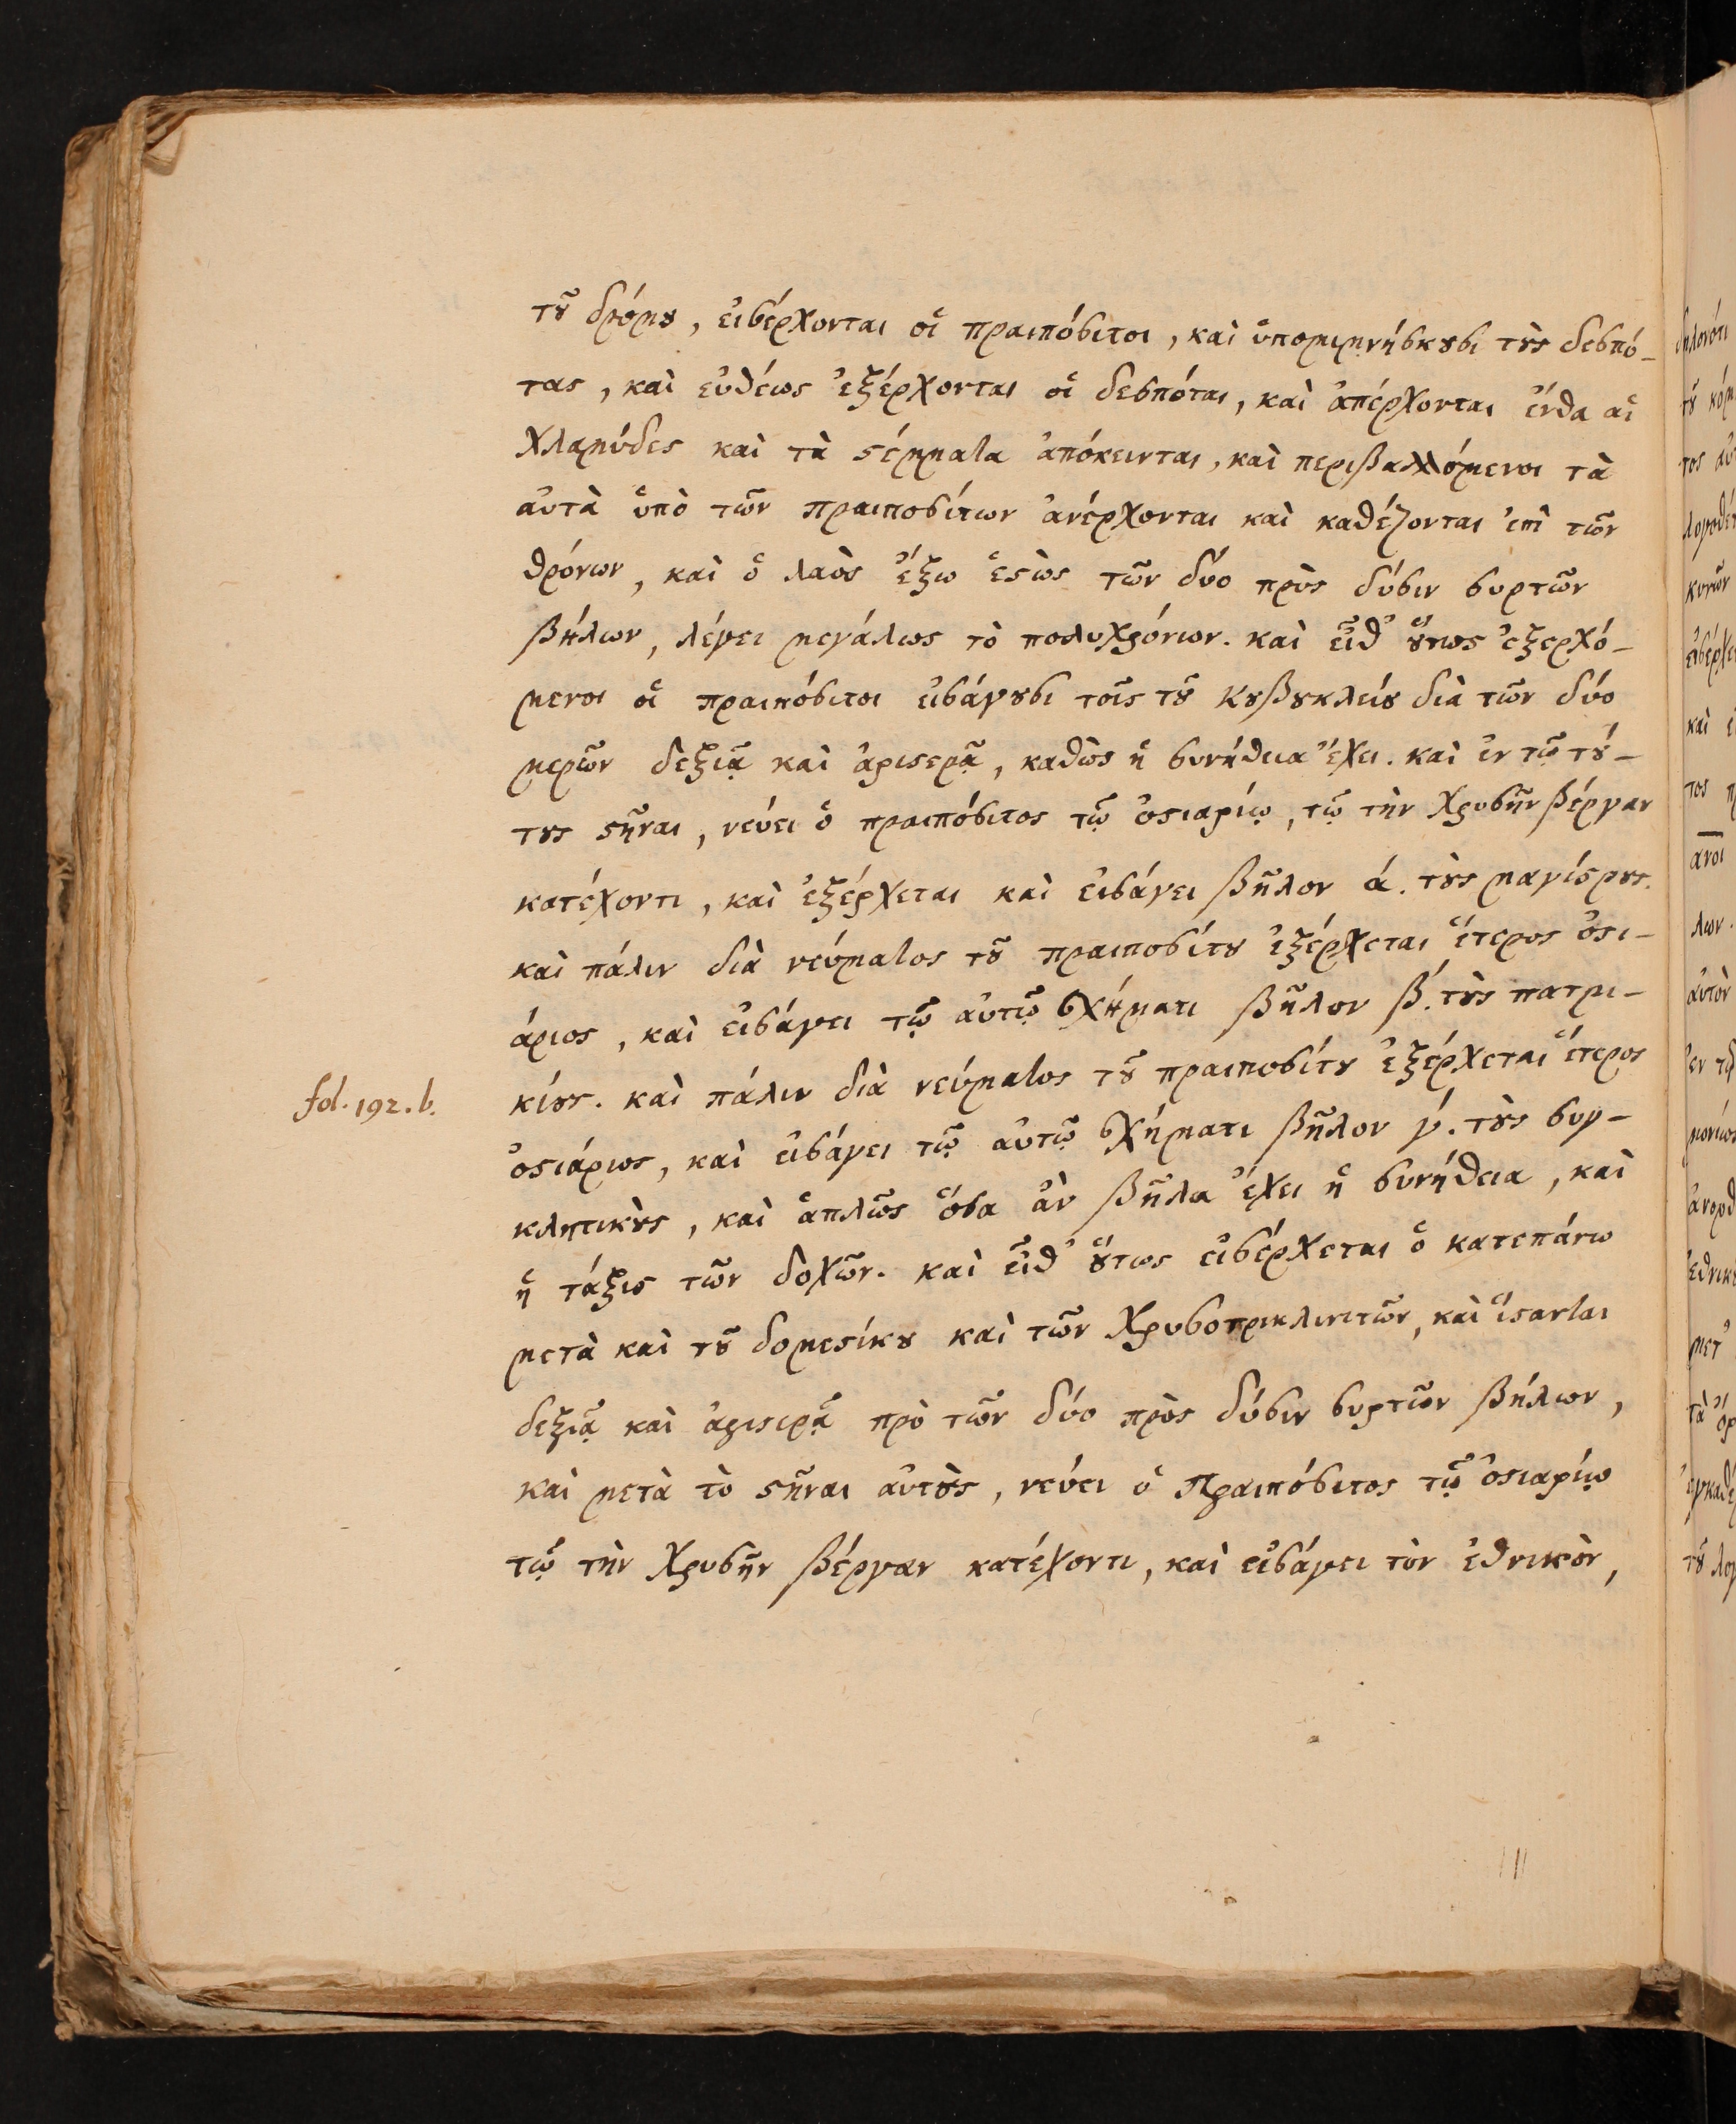 τȣ͂ δρόμȣ, εἰσέρχονται οἱ πραιπόσιτοι, καὶ ὑπομιμνήσκȣσι τȣ̀ς δεσπό-
τας, καὶ εὐθέως ἐξέρχονται οἱ δεσπόται, καὶ ἀπέρχονται ἔνθα αἱ
χλαμύδες καὶ τὰ ϛέμματα ἀπόκεινται, καὶ περιβαλλόμενοι τὰ
αὐτὰ ὑπὸ τῶν πραιποσίτων ἀνέρχονται καὶ καθέζονται ἐπὶ τῶν
θρόνων, καὶ ὁ λαὸς ἔξω ἑϛὼς τῶν δύο πρὸς δύσιν συρτῶν
βήλων, λέγει μεγάλως τὸ πολυχρόνιον. καὶ εἶθ' ȣ́τως ἐξερχό-
μενοι οἱ πραιπόσιτοι εἰσάγȣσι τοῖς τȣ͂ Κȣβȣκλείȣ διὰ τῶν δύο
μερῶν δεξιᾷ καὶ ἀριϛερᾷ, καθὼς ἡ συνήθεια ἔχει. καὶ ἐν τῷ τȣ́-
τȣς ϛῆναι, νεύει ὁ πραιπόσιτος τῷ ὀϛιαρίῳ, τῷ τὴν χρυσῆν βέργαν
κατέχοντι, καὶ ἐξέρχεται καὶ εἰσάγει βῆλον ά. τȣ̀ς μαγίϛρȣς.
καὶ πάλιν διὰ νεύματος τȣ͂ πραιποσίτȣ ἐξέρχεται ἕτερος ὀϛι-
άριος, καὶ εἰσάγει τῷ αὐτῷ σχήματι βῆλον β́. τȣ̀ς πατρι-
fol. 192. b. κίȣς. καὶ πάλιν διὰ νεύματος τȣ͂ πραιποσίτȣ ἐξέρχεται ἕτερος
ὀϛιάριος, καὶ εἰσάγει τῷ αὐτῷ σχήματι βῆλον γ́. τȣ̀ς συγ-
κλητικȣ̀ς, καὶ ἁπλῶς ὅσα ἂν βῆλα ἔχει ἡ συνήθεια, καὶ
ἡ τάξις τῶν δοχῶν. καὶ εἶθ' ȣ́τως εἰσέρχεται ὁ κατεπάνω
μετὰ καὶ τȣ͂ δομεϛίκȣ καὶ τῶν χρυσοτρικλινιτῶν, καὶ ἵϛανται
δεξιᾷ καὶ ἀριϛερᾷ πρὸ τῶν δύο πρὸς δύσιν συρτῶν βήλων,
καὶ μετὰ τὸ ϛῆναι αὐτȣ̀ς, νεύει ὁ πραιπόσιτος τῷ ὀϛιαρίῳ
τῷ τὴν χρυσῆν βέργαν κατέχοντι, καὶ εἰσάγει τὸν ἐθνικὸν,